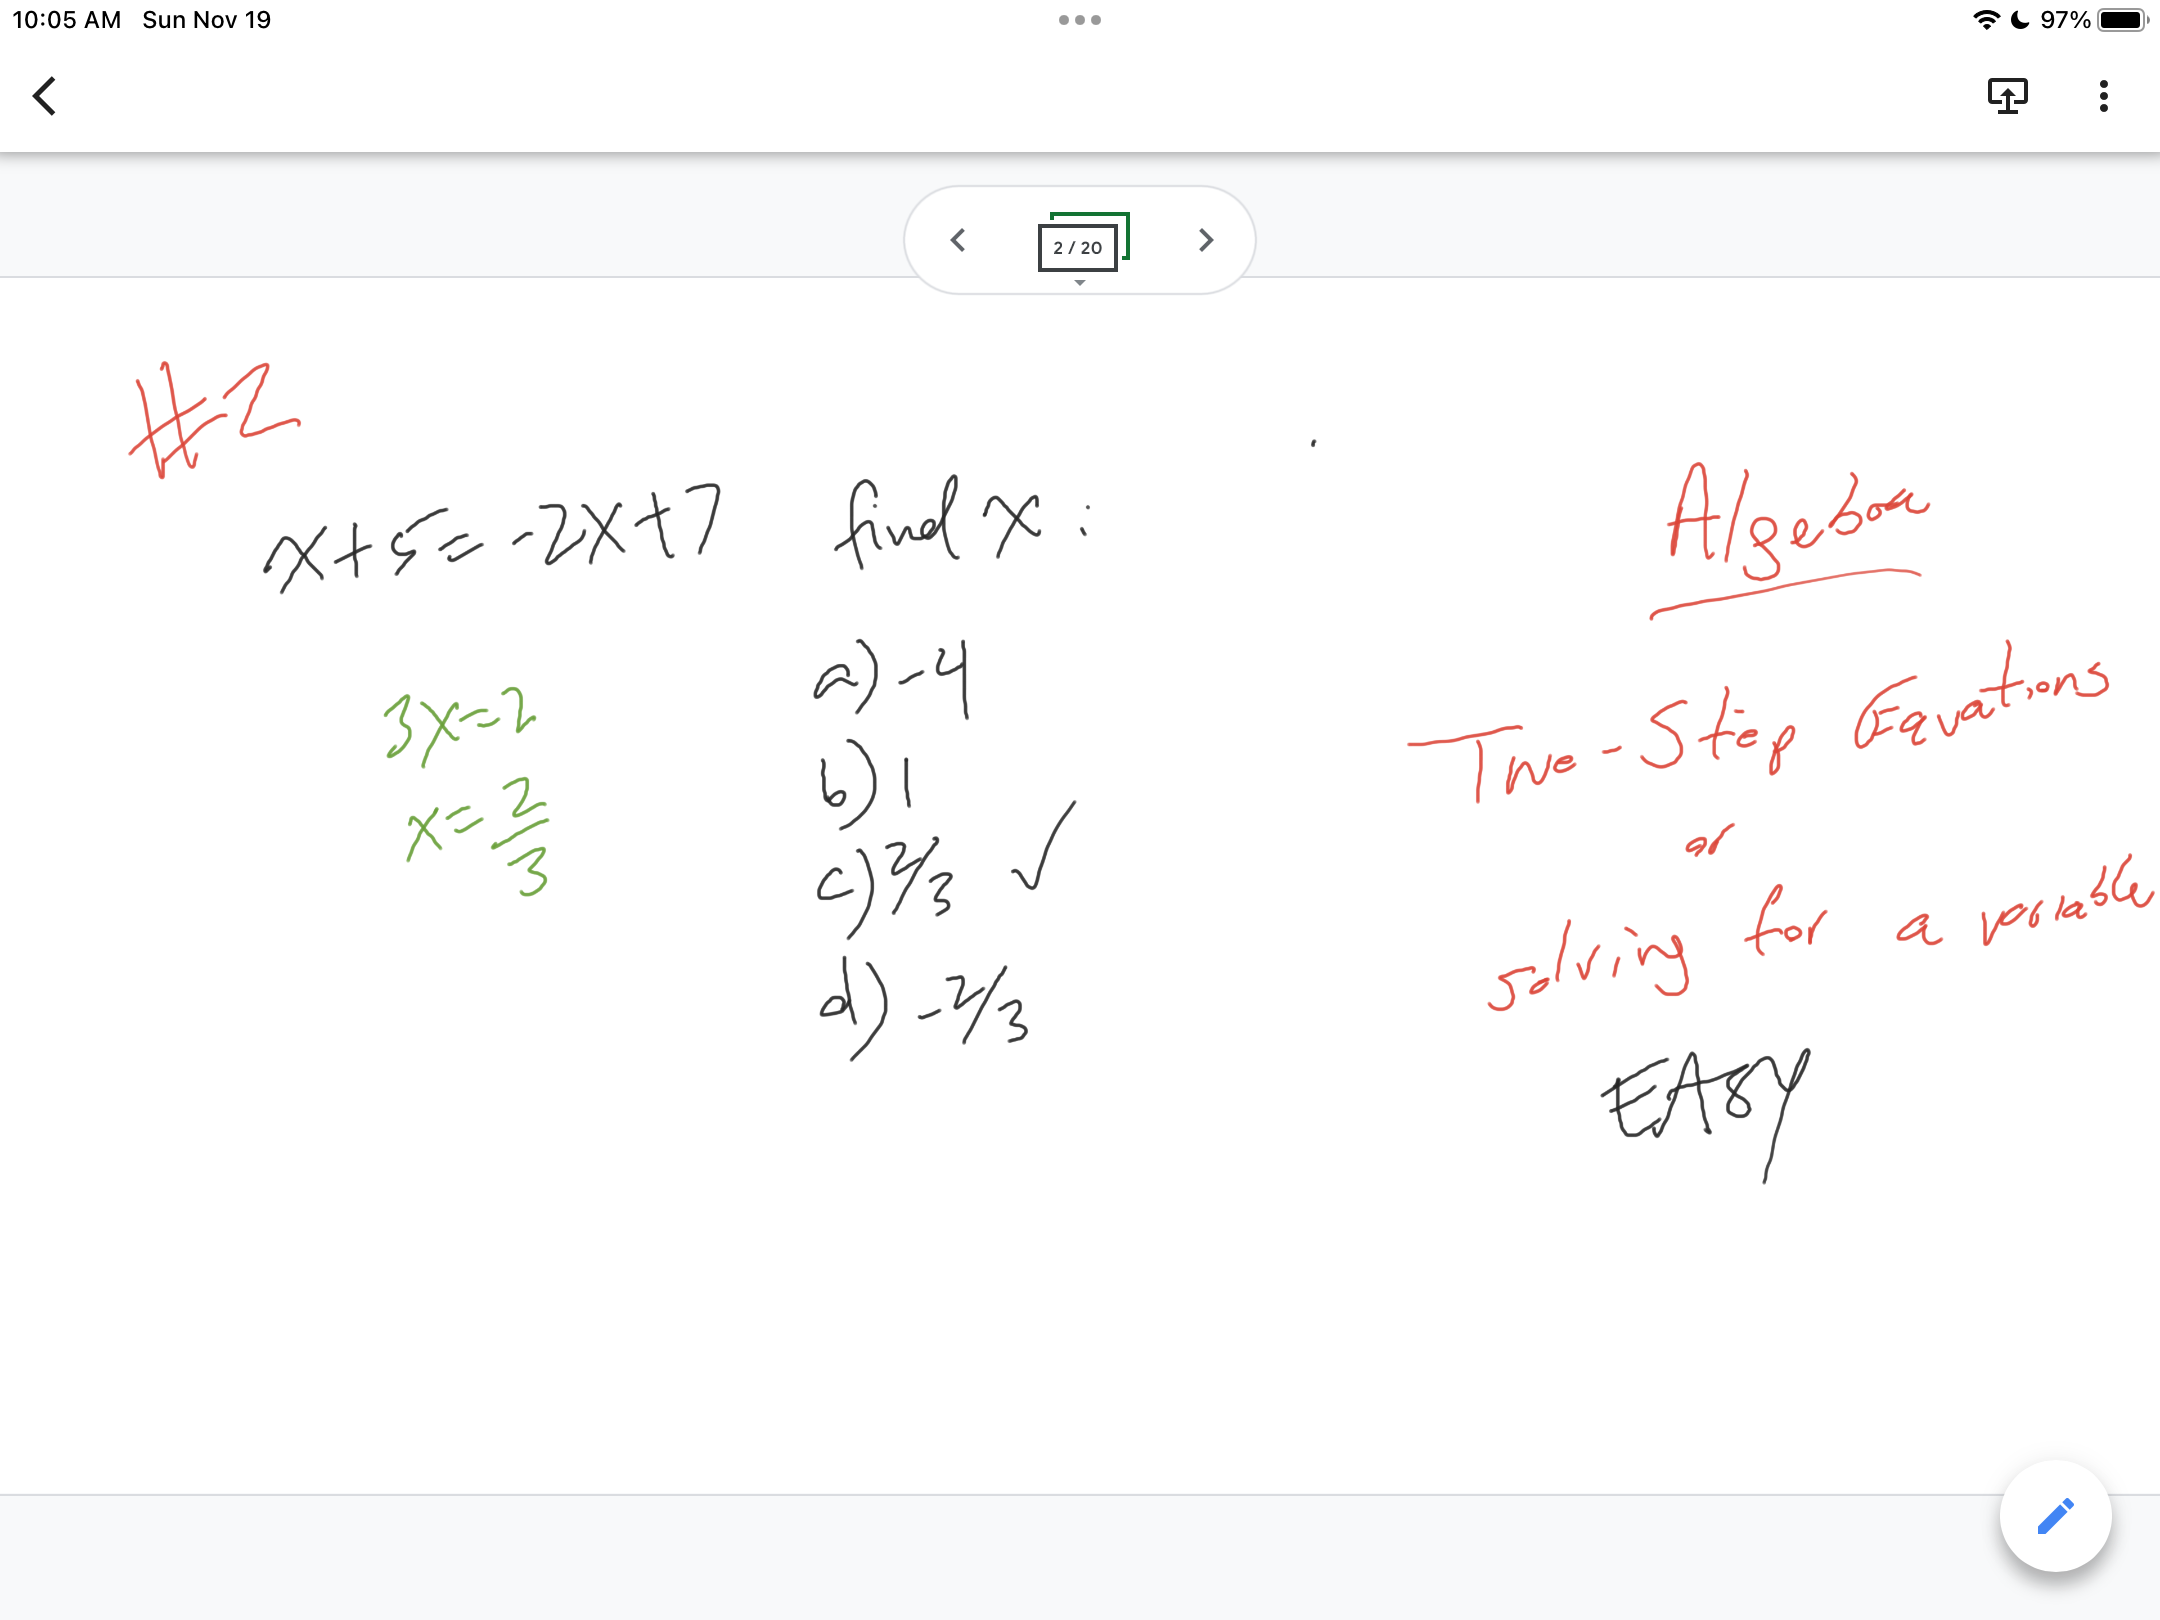 10:05 AM Sun Nov 19
97%
2 / 20
#2
x+5=-2x+7 find x:
3x=2
x=2/3
a) -4
b) 1
c) 2/3 ✓
d) -2/3
Algebra
Two-Step Equations
or
solving for a variable
EASY